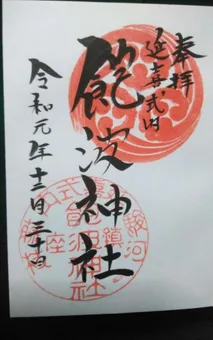 奉拝
延喜式内
飽波神社
令和元年十二月三十日